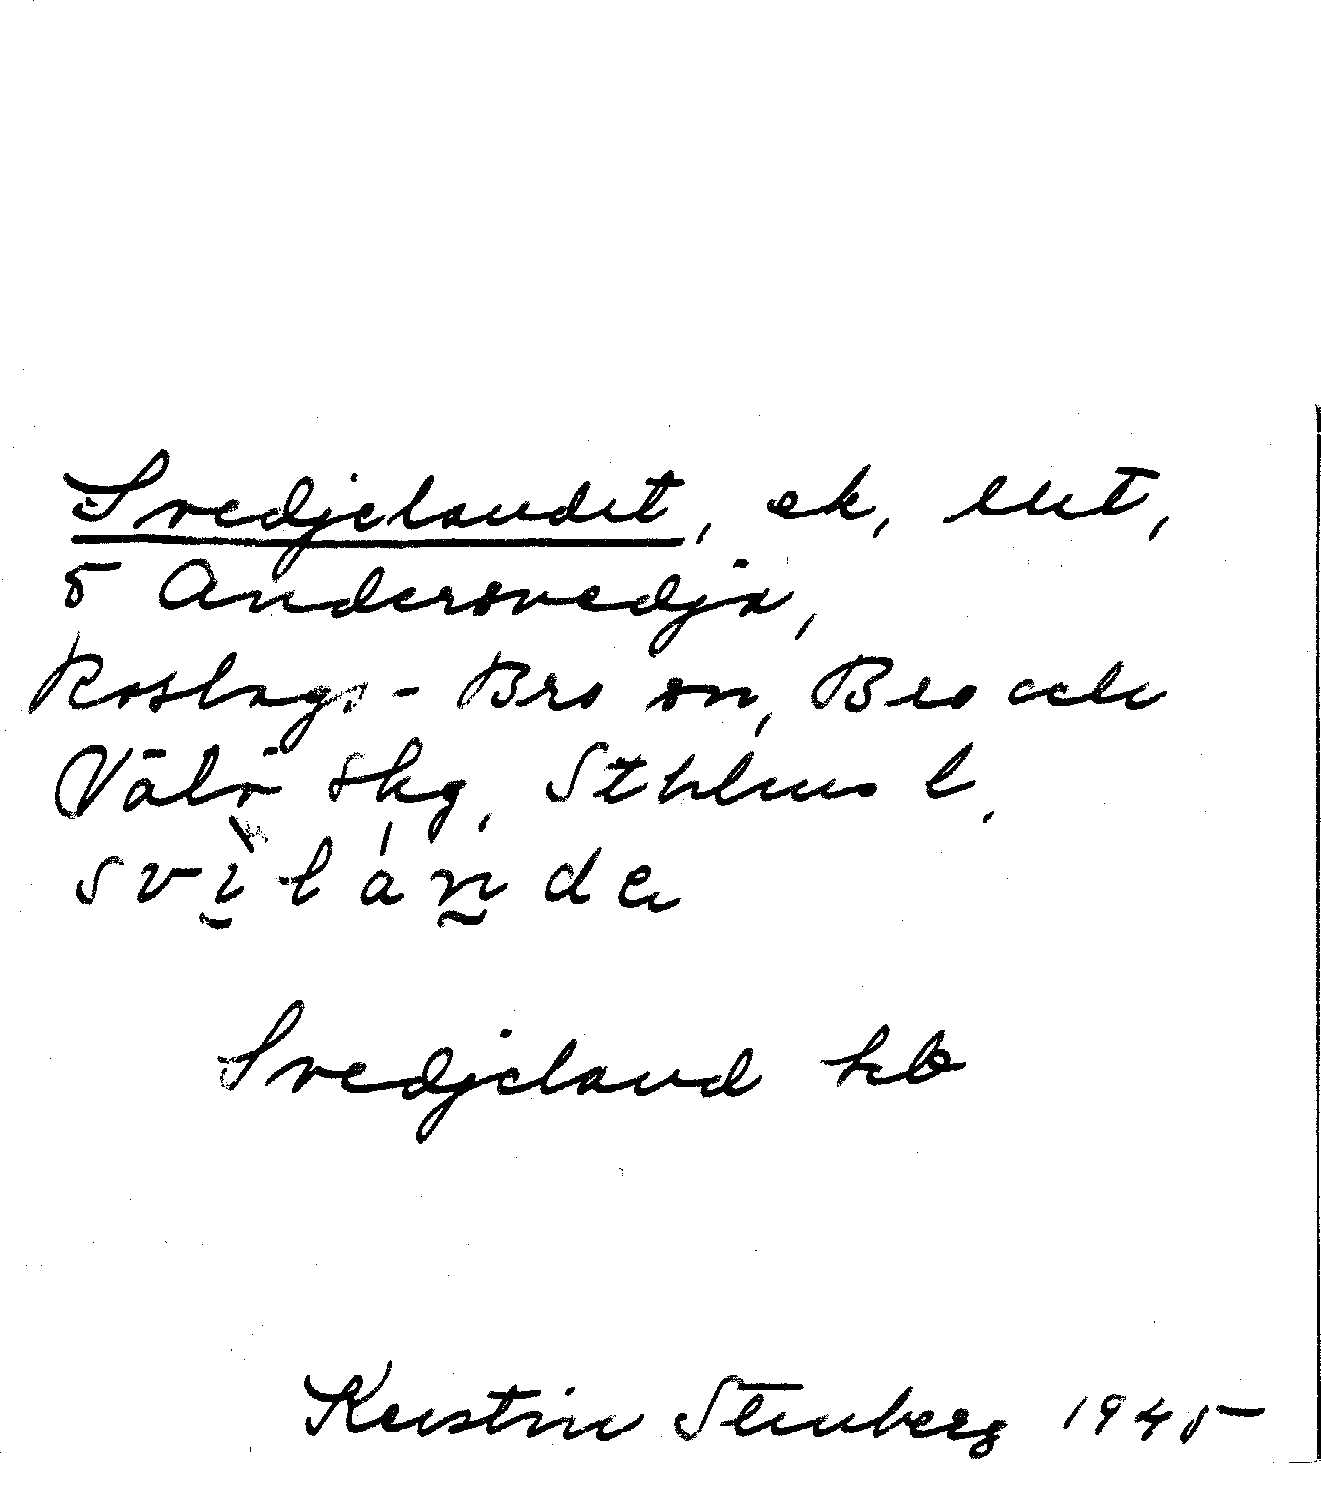 Svedjelandet, ek, lut,
5 Andersvedja,
Roslags-Bro sn, Bro och
Väló skg, Sthlms l.
svìlánde
Svedjeland hb
Kerstin Stenberg 1945